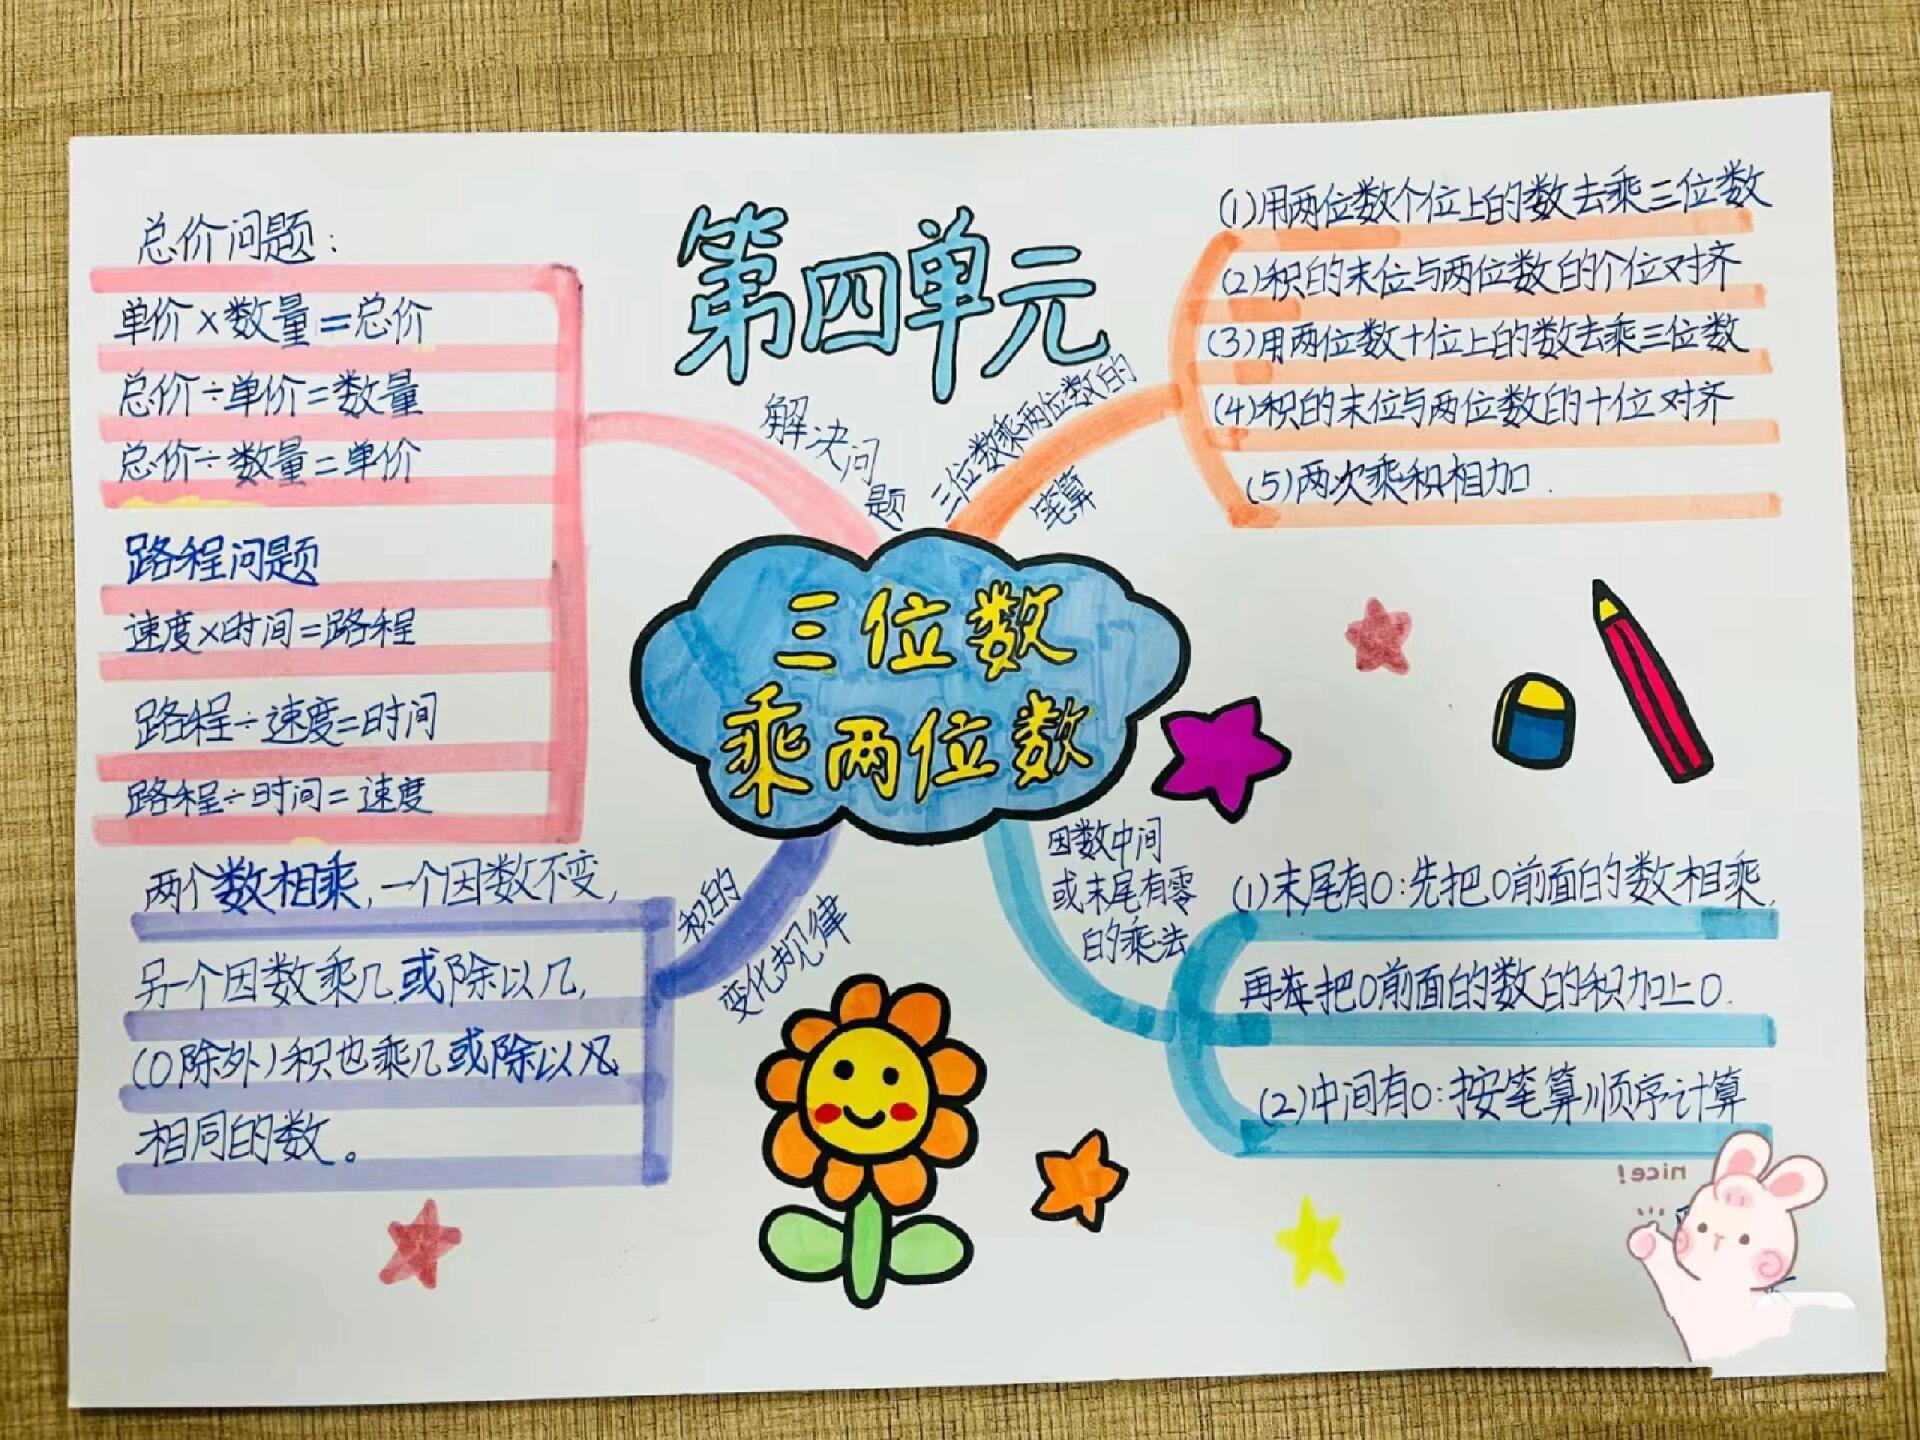 第四单元
三位数
乘两位数
解决问题
总价问题:
单价×数量=总价
总价÷单价=数量
总价÷数量=单价
路程问题
速度×时间=路程
路程÷速度=时间
路程÷时间=速度
三位数乘两位数的
笔算
(1)用两位数个位上的数去乘三位数
(2)积的末位与两位数的个位对齐
(3)用两位数十位上的数去乘三位数
(4)积的末位与两位数的十位对齐
(5)两次乘积相加.
积的
变化规律
两个数相乘,一个因数不变,
另一个因数乘几或除以几,
(0除外)积也乘几或除以几
相同的数。
因数中间
或末尾有零
的乘法
(1)末尾有0:先把0前面的数相乘,
再把0前面的数的积加上0.
(2)中间有0:按笔算顺序计算
nice!